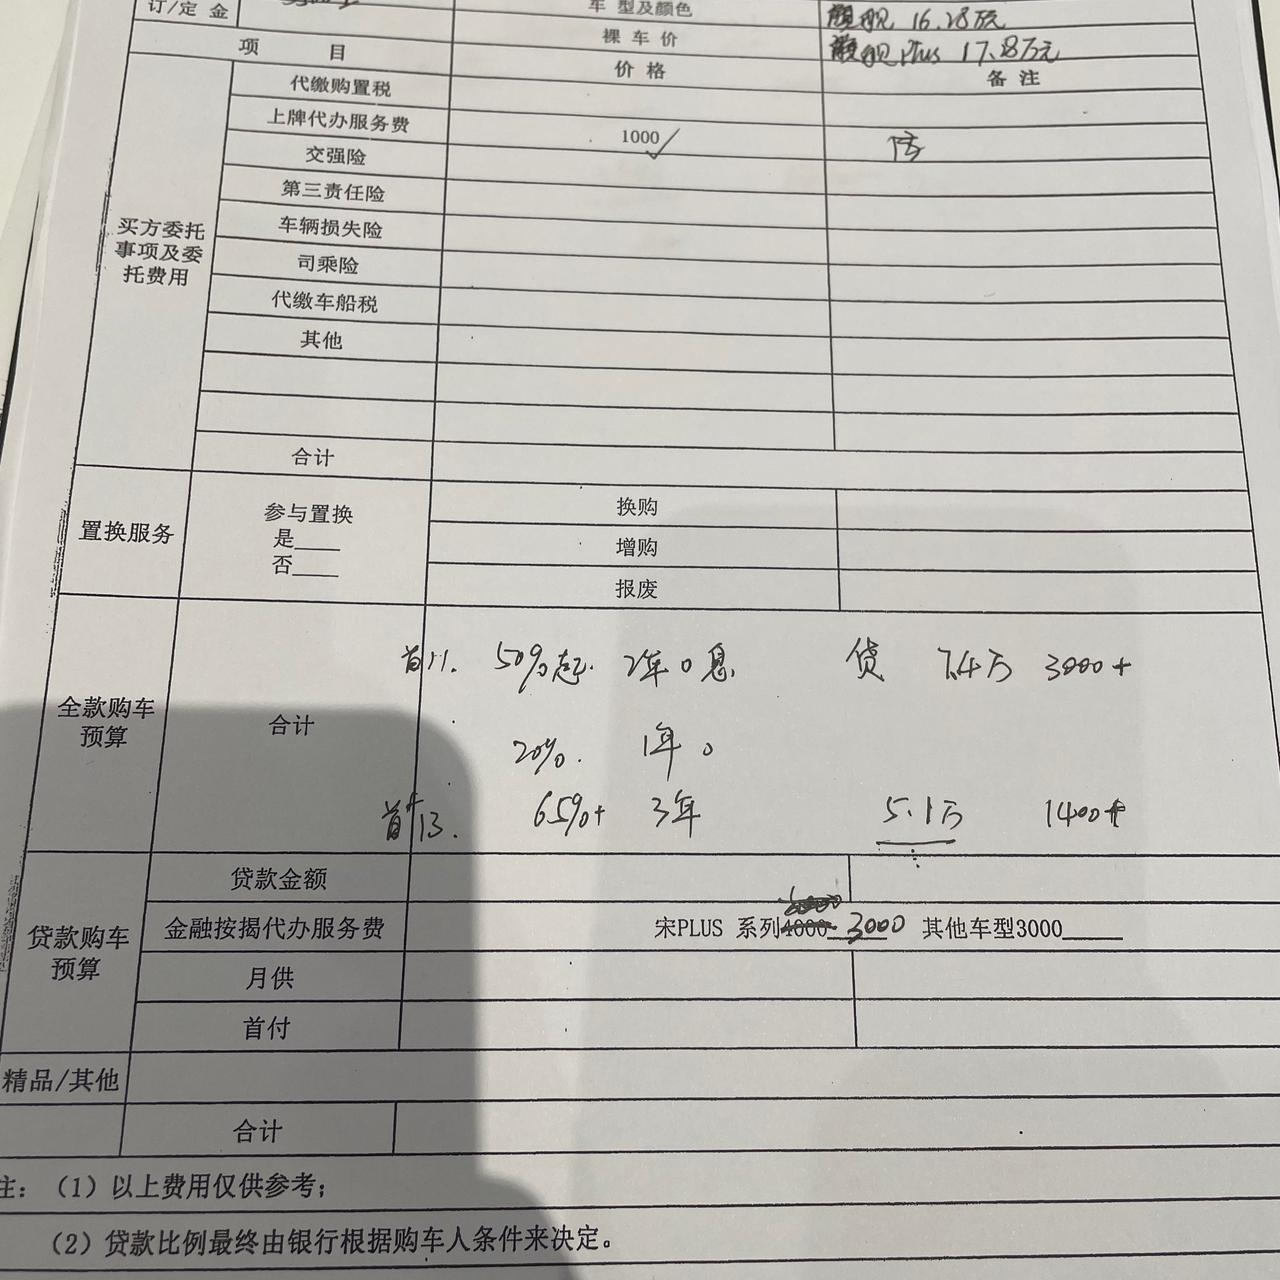 订/定 金
车 型及颜色
旗舰 16.28万元
裸 车 价
旗舰 Plus 17.8万元
项 目
价 格
备 注
买方委托
事项及委
托费用
代缴购置税
上牌代办服务费
1000
交强险
第三责任险
车辆损失险
司乘险
代缴车船税
其他
合计
置换服务
参与置换
是____
否____
换购
增购
报废
全款购车
预算
合计
首11. 50%起. 2年0息 贷 7.4万 3000+
20%. 1年 0
首付13. 65%+ 3年 5.1万 1400+
贷款购车
预算
贷款金额
金融按揭代办服务费
宋PLUS 系列4000 3000 其他车型3000_____
月供
首付
精品/其他
合计
注：（1）以上费用仅供参考；
（2）贷款比例最终由银行根据购车人条件来决定。